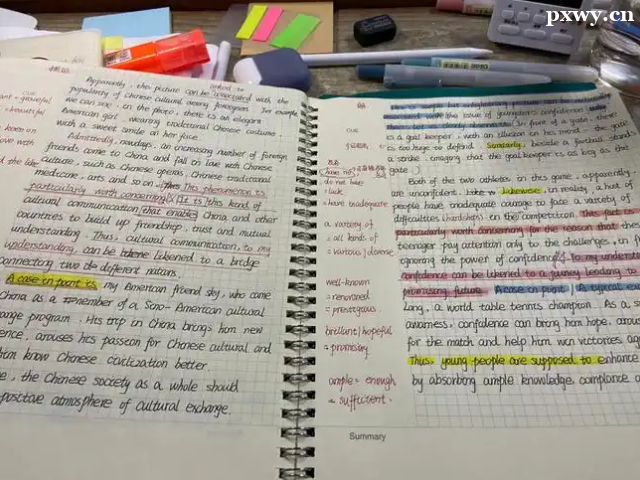 pxwy.cn
cue
= graceful
= beautiful
Apparently, the picture can be associated with the
linked to
popularity of Chinese cultural among foreigners. For example
we can see, in the photo, there is an elegant
American girl wearing traditional Chinese costume
with a sweet smile on her face.
Admittedly, nowadays, an increasing number of foreign
friends come to China and fall in love with Chinese
culture, such as Chinese operas, Chinese traditional
medicine, arts and so on. This phenomenon is
particularly worth concerning. It is this kind of
cultural communication that enable China and other
countries to build up friendship, trust and mutual
understanding. Thus, cultural communication, to my
understanding, can be likened to a bridge
connecting two different nations.
A case in point is my American friend sky, who came
China as a member of a Sino-American cultural
ange program. His trip in China brings him new
ence, arouses his passion for Chinese cultural and
him know Chinese civilization better.
e, the Chinese society as a whole should
positive atmosphere of cultural exchange.
cue
have no
= do not have
= lack
= have inadequate
a variety of
= all kinds of
= various / diverse
well-known
= renowned
= prestigious
brilliant / hopeful
= promising
ample = enough
= sufficient
with the issue of youngster's confidence
In front of a gate, there
is a goal keeper, with an illusion on his mind - the goal
is too huge to defend. Similarly, beside a football stand
a strike, imaging that the goal keeper is as big as the
gate.
Both of the two athletes in this game, apparently,
are unconfident. Likewise, in reality, a host of
people have inadequate courage to face a variety of
difficulties (hardships) in the competition. This fact is
particularly worth concerning for the reason that these
teenager pay attention only to the challenges, in
ignoring the power of confidence. To my understand
confidence can be likened to a journey leading to
promising future. A case in point A typical exam
Long, a world table tennis champion. As a s
awareness, confidence can bring him hope, arous
for the match and help him won victories aga
Thus, young people are supposed to enhance
by absorbing ample knowledge, compliance a
Summary